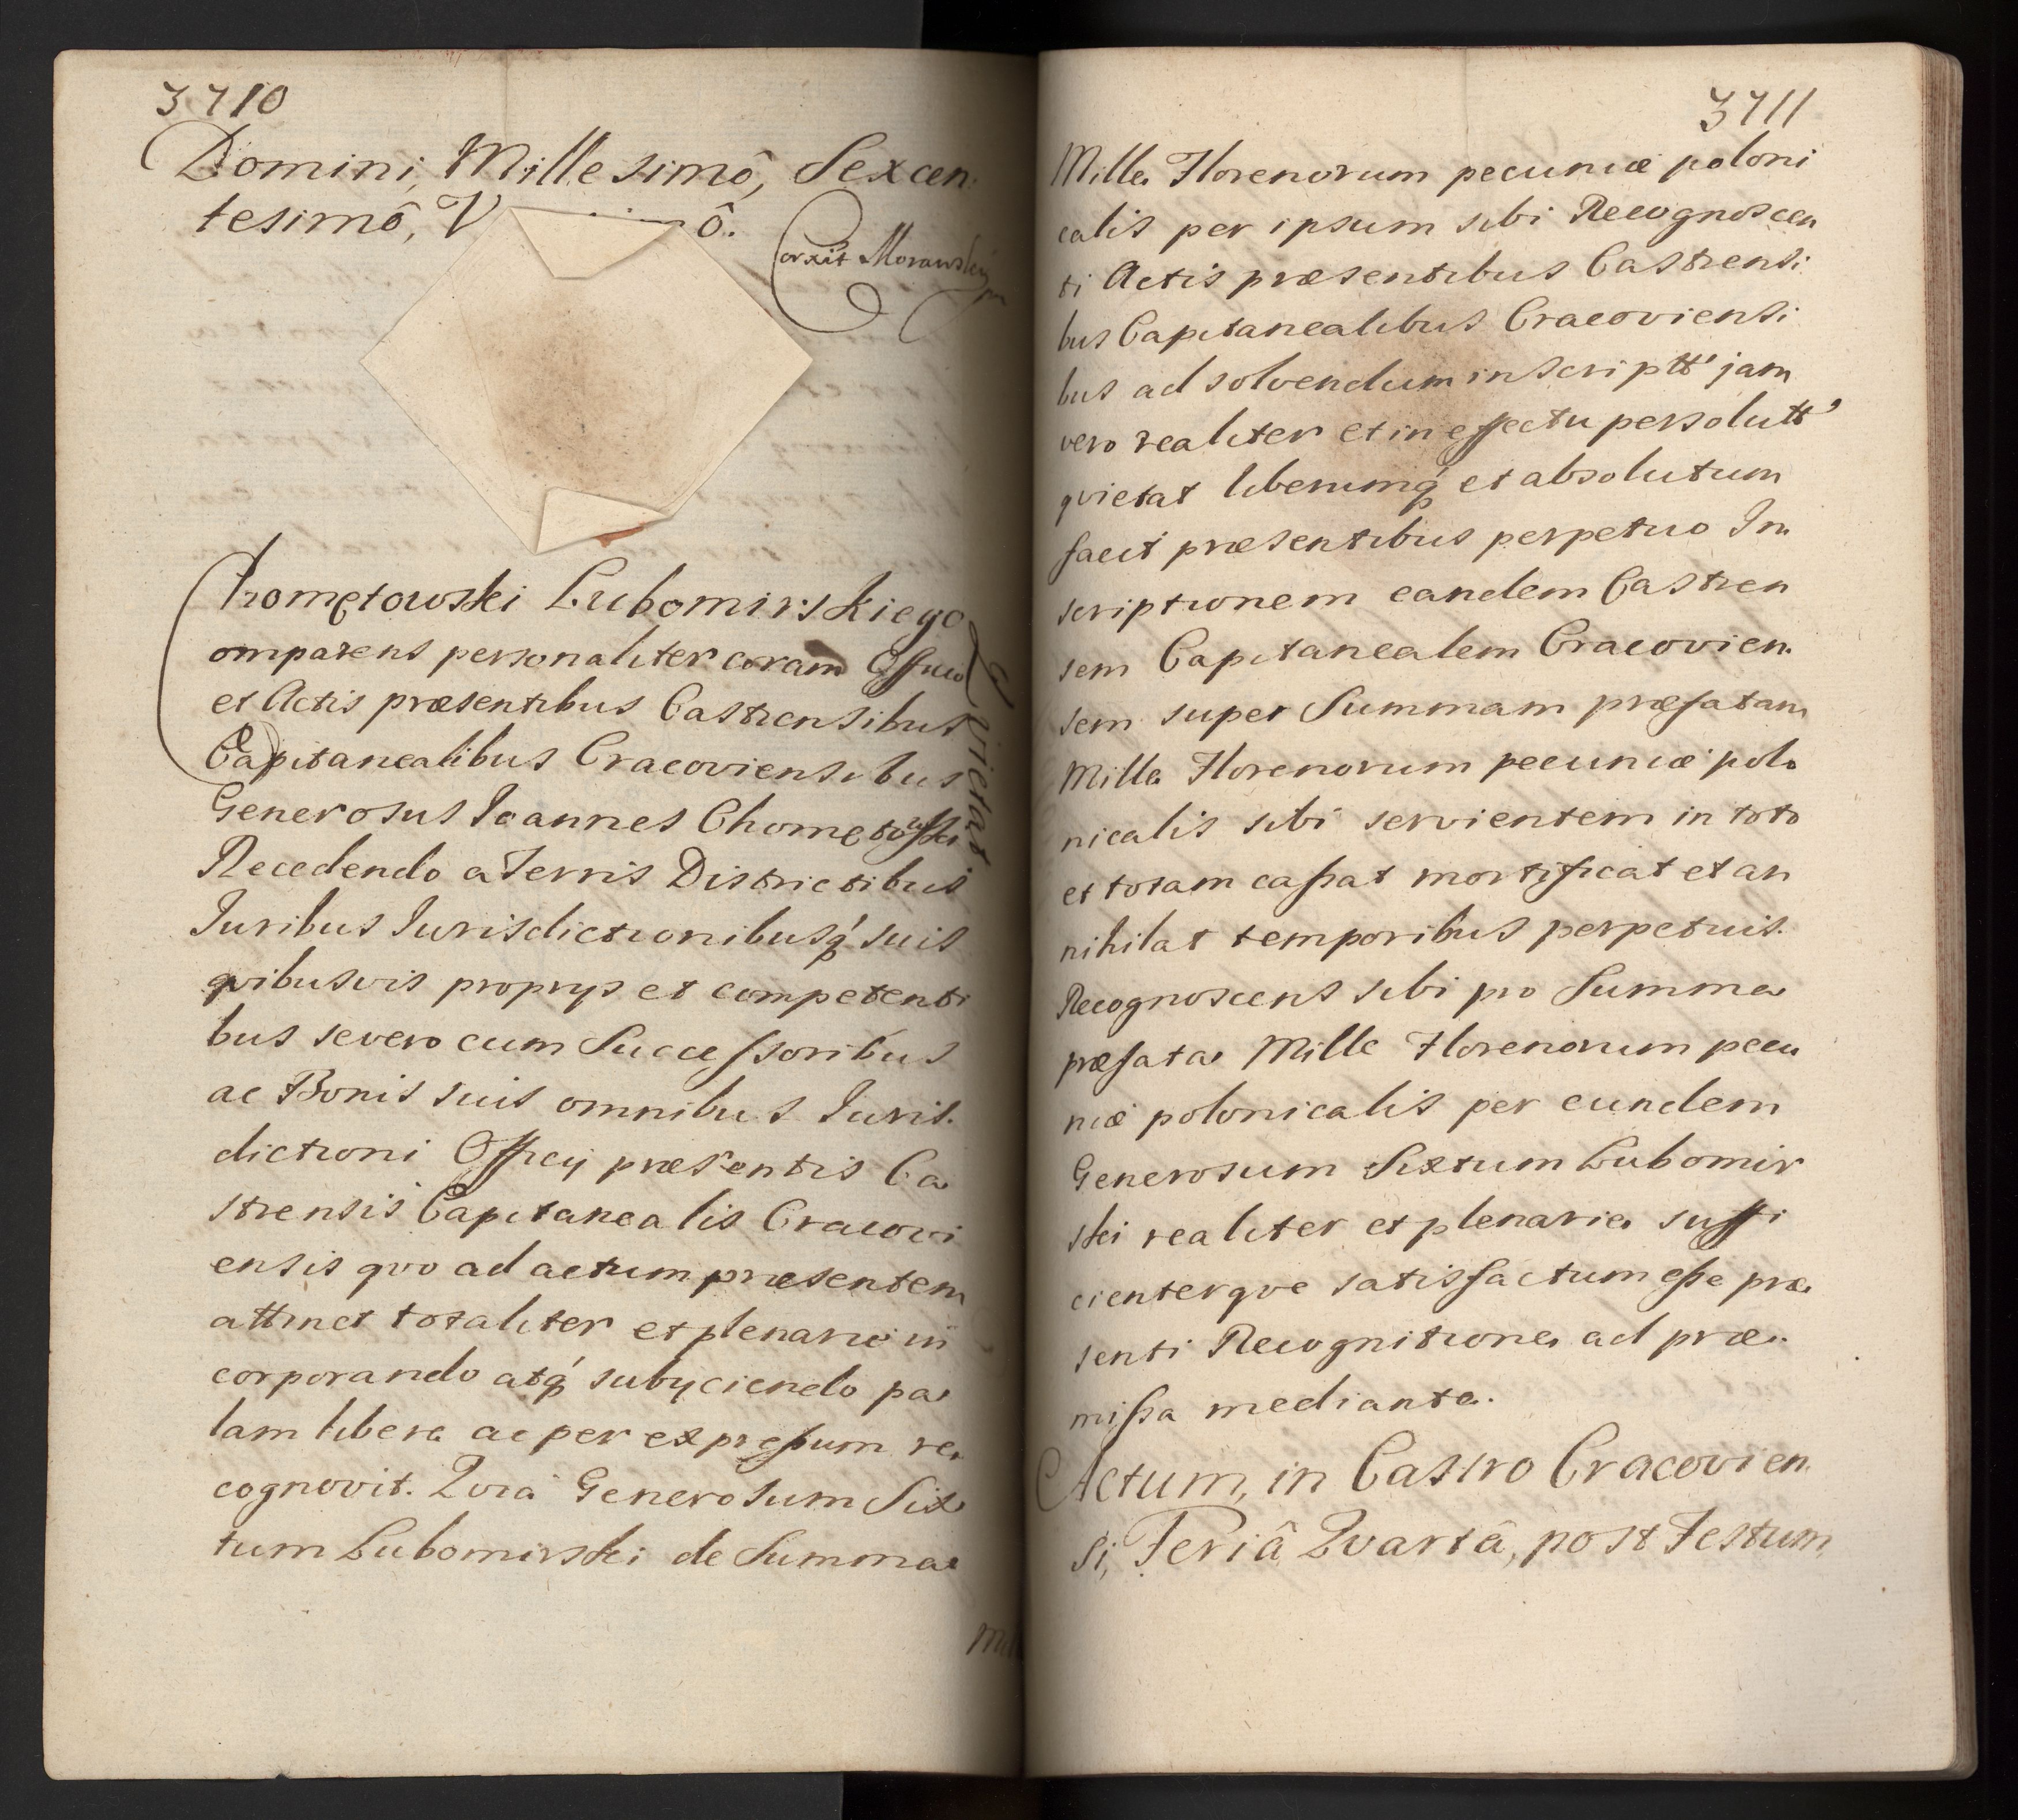 3710
Domini, Millesimô, Sexcen
tesimô, V mô.
Corxit Morawski
Chomętowski Lubomirskiego
Qvietat
omparens personaliter coram Officio
et Actis præsentibus Castrensibus
Capitanealibus Cracoviensibus
Generosus Ioannes Chomętowski
Recedendo a Terris Districtibus
Iuribus Iurisdictionibusq́ suis
qvibusvis proprijs et competenti
bus se vero cum Successoribus
ac Bonis suis omnibus Iuris.
dictioni Officij præsentis Ca
strensis Capitanealis Cracovi
ensis qvo ad actum præsentem
attinet totaliter et plenarie in
corporando atq́ subijciendo pa
lam libere ac per expressum re
cognovit. Qvia Generosum Six
tum Lubomirski de Summa
Mille
3711
Mille Florenorum pecuniæ poloni
calis per ipsum sibi Recognoscen
ti Actis præsentibus Castrensi
bus Capitanealibus Cracoviensi
bus ad solvendum inscriptt' jam
vero realiter et in effectu persolutt'
qvietat liberumq́ et absolutum
facit præsentibus perpetuo In
scriptionem eandem Castren
sem Capitanealem Cracovien.
sem super Summam præfatam
Mille Florenorum pecuniæ polo
nicalis sibi servientem in toto
et totam cassat mortificat et an
nihilat temporibus perpetuis.
Recognoscens sibi pro Summa
præfata Mille Florenorum pecu
niæ polonicalis per eundem
Generosum Sixtum Lubomir
ski realiter et plenarie suffi
cienterqve satisfactum esse præ
senti Recognitione ad præ..
missa mediante.
Actum, in Castro Cracovien.
si, Feriâ Qvartâ, post Festum